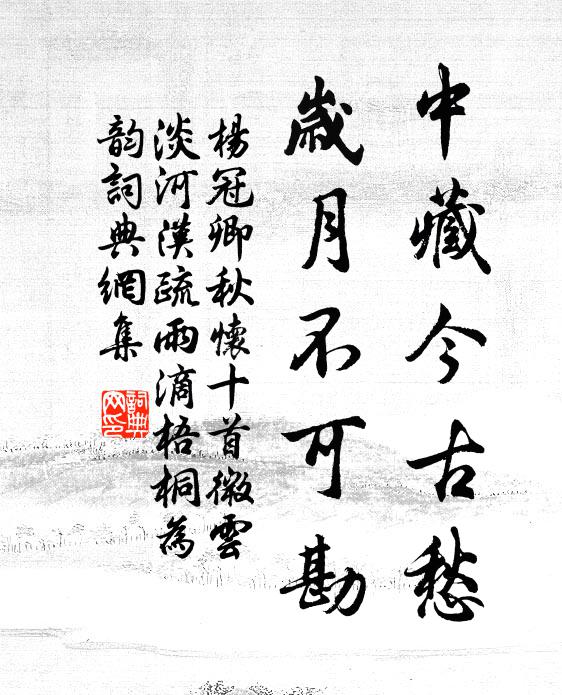 中藏今古愁
歲月不可勘
楊冠卿秋懷十首微雲
淡河漢疏雨滴梧桐為
韵詞典網集
詞典
网印